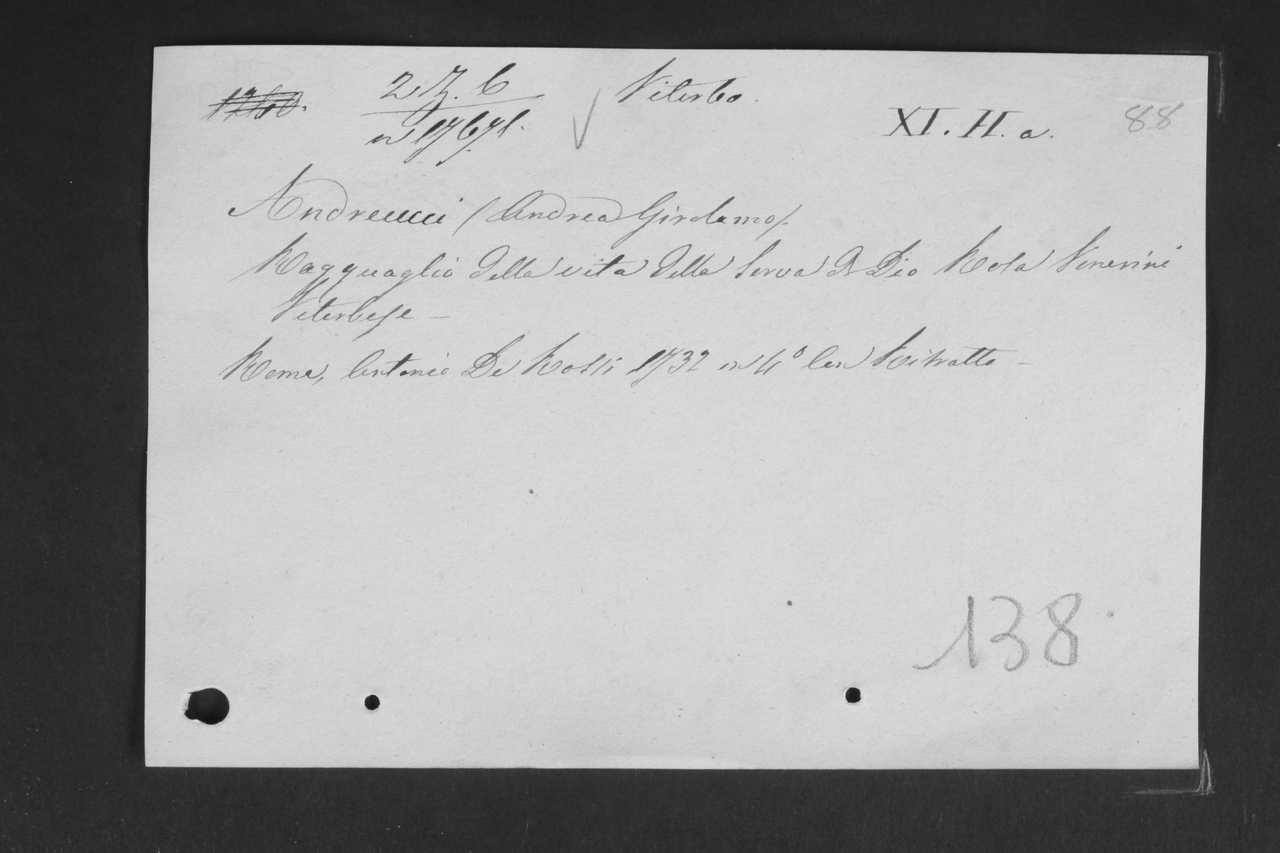 2. Z. 6 Viterbo.
XI. H. a. 88
Andreucci (Andrea Girolamo).
Ragguaglio della vita della Serva di Dio Rosa Venerini
Viterbese —
Roma, Antonio De Rossi 1732 in 4º Con Ritratto —
138